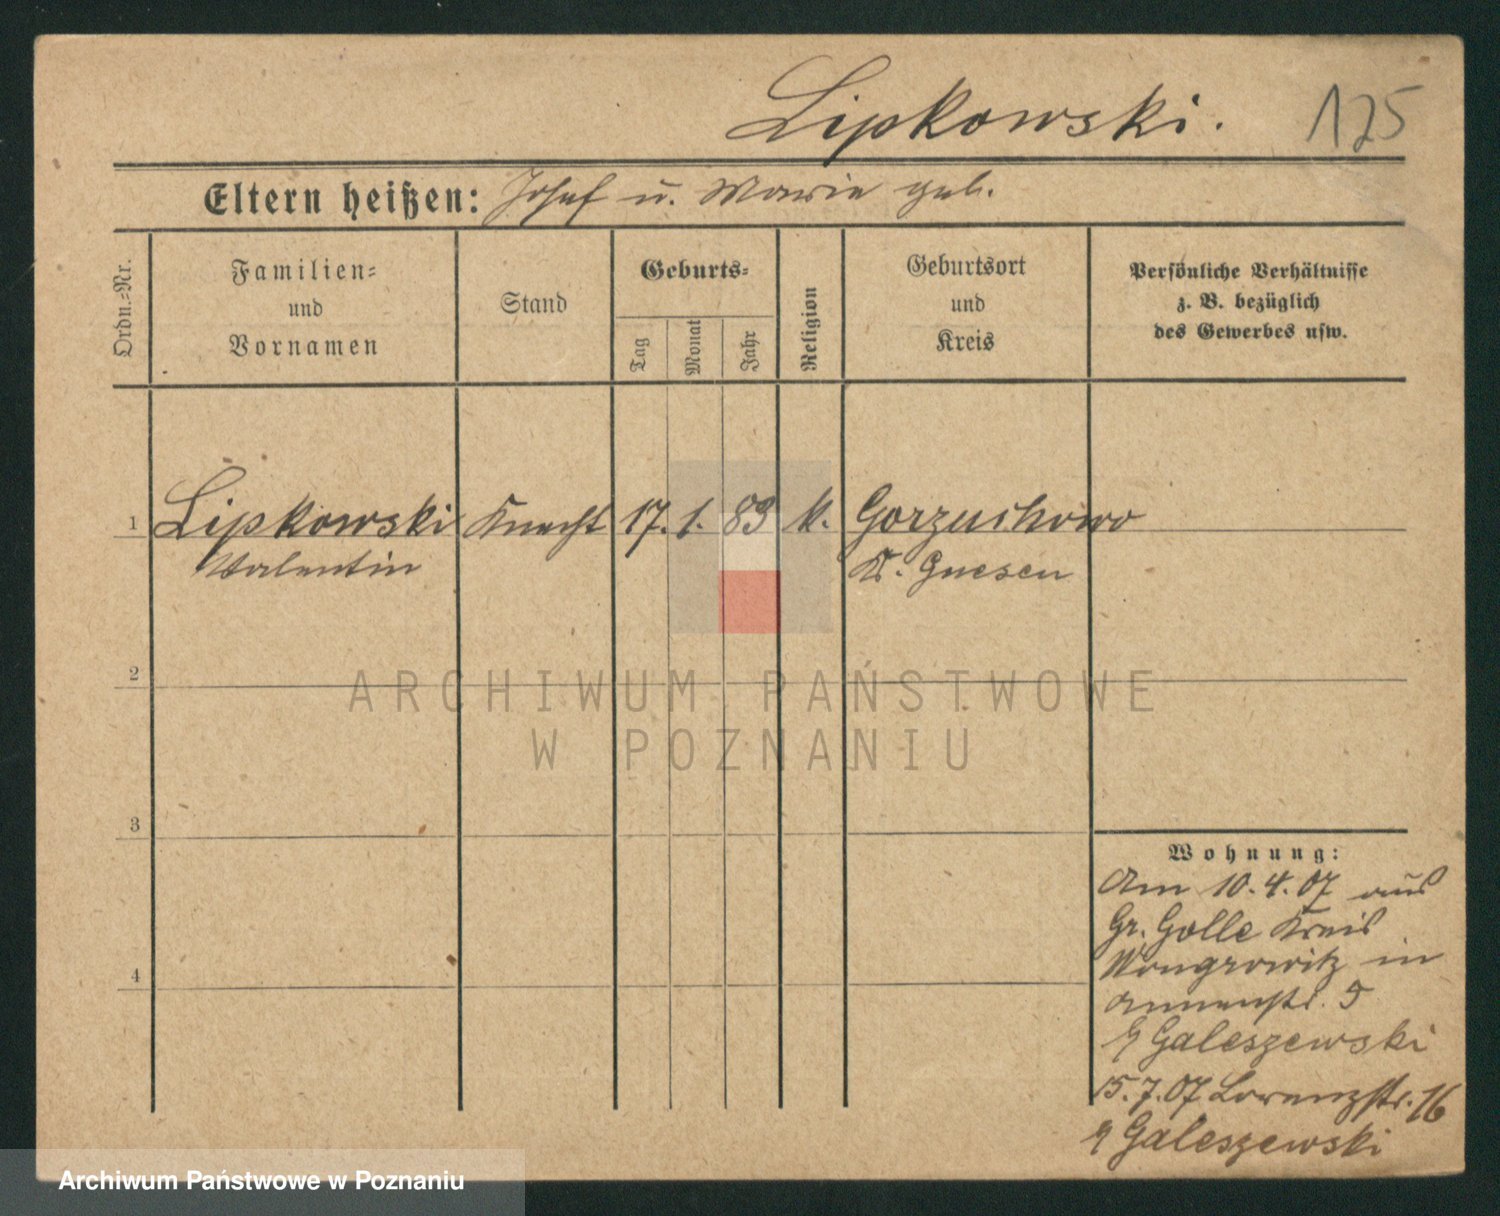 Lipkowski. 125
Eltern heißen: Josef u. Marie geb.
Ordn.-Nr.
Familien-
und
Vornamen
Stand
Geburts-
Tag
Monat
Jahr
Religion
Geburtsort
und
Kreis
Persönliche Verhältnisse
z. B. bezüglich
des Gewerbes usw.
1 Lipkowski Knecht 17. 1. 83 k. Gorzuchowo
Valentin Kr. Gnesen
2
ARCHIWUM PAŃSTWOWE
W POZNANIU
3
Wohnung:
Am 10.4.07 aus
Gr. Golle Kreis
Wongrowitz in
Annenstr. 5
Galeszewski
4
15.7.07 Lorenzstr. 16
Galeszewski
Archiwum Państwowe w Poznaniu